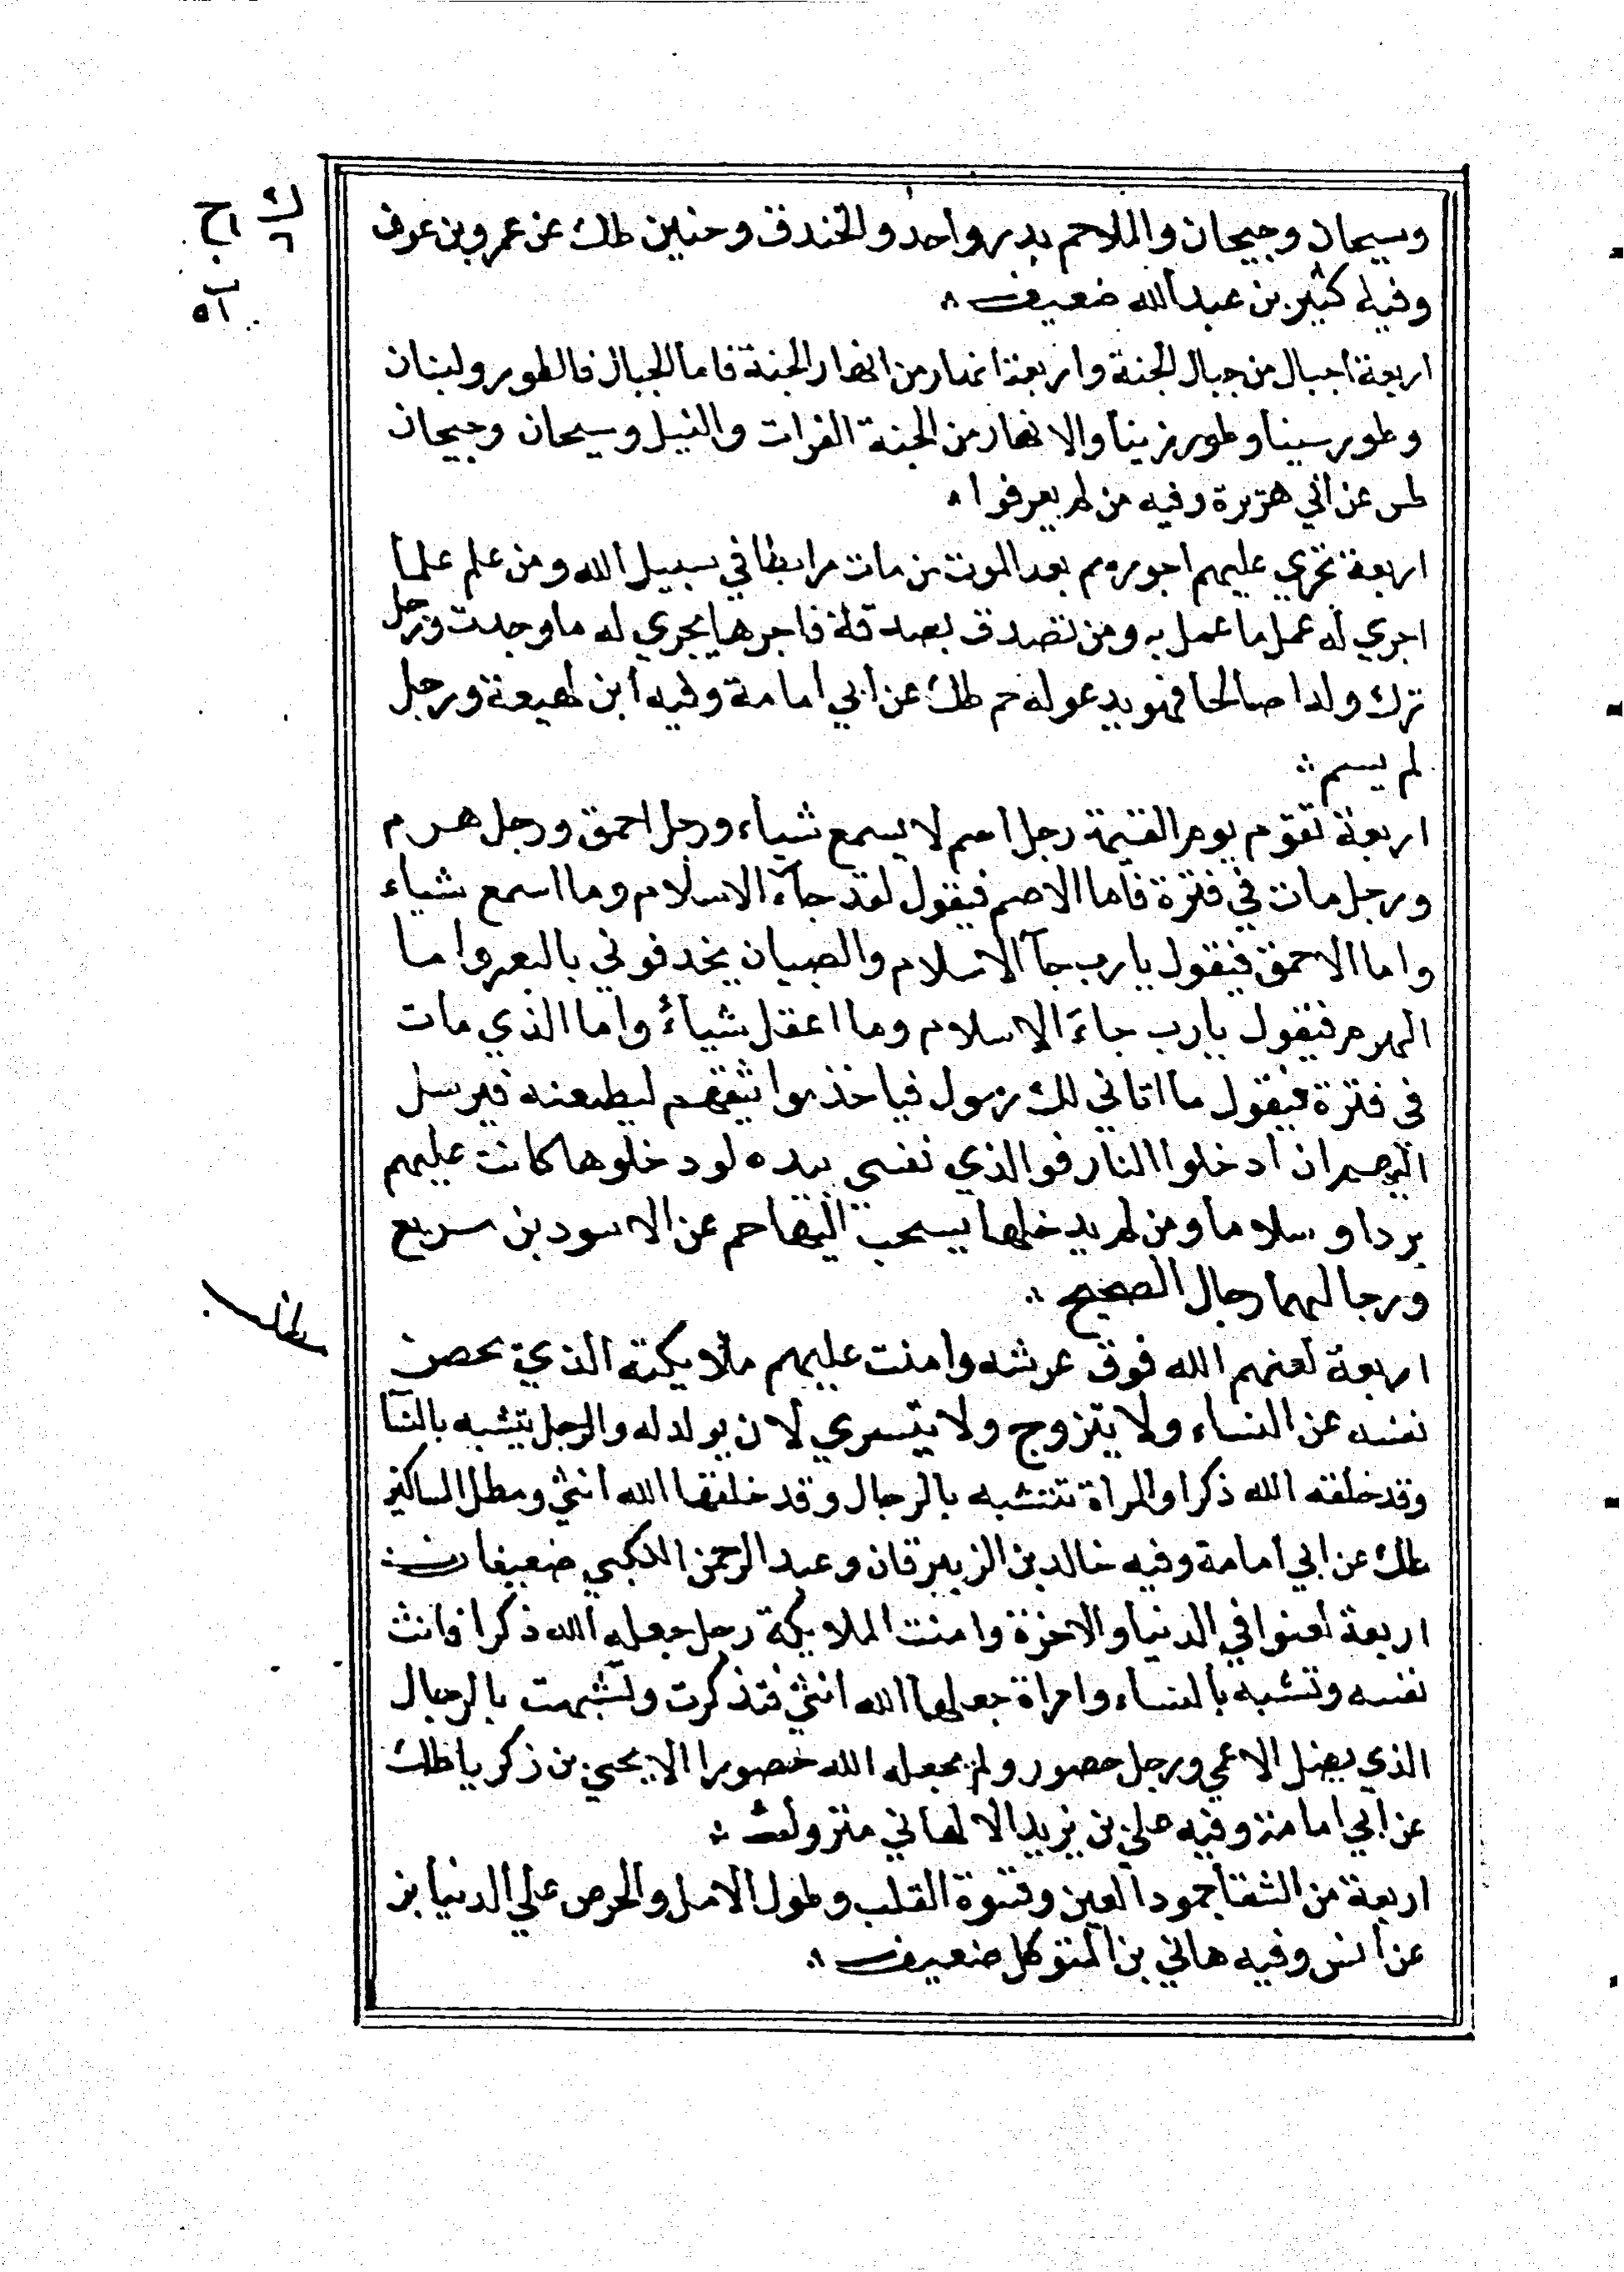 وسيحان وجيحان والملاحم بدر واحد والخندق وحنين طك عن عمرو بن عوف
وفيه كثير بن عبد الله ضعيف
اربعة اجبال من جبال الجنة واربعة انهار من انهار الجنة فاما الجبال فالطور ولبنان
وطور سينا وطور زينا والانهار من الجنة الفرات والنيل وسيحان وجيحان
طس عن ابي هريرة وفيه من لم يعرفوا
اربعة تجري عليهم اجورهم بعد الموت من مات مرابطا في سبيل الله ومن علم علما
اجري له عمل ما عمل به ومن تصدق بصدقة فاجرها يجري له ما وجدت ورجل
ترك ولدا صالحا فهو يدعو له حم طك عن ابي امامة وفيه ابن لهيعة ورجل
لم يسم
اربعة تقوم يوم القيمة رجل اصم لا يسمع شياء ورجل احمق ورجل هرم
ورجل مات في فترة فاما الاصم فيقول لقد جآء الاسلام وما اسمع شياء
واما الاحمق فيقول يارب جآ الاسلام والصبيان يخدفوني بالبعر واما
الهرم فيقول يارب جاء الاسلام وما اعقل شياء واما الذي مات
في فترة فيقول ما اتاني لك رسول فياخذ مواثيقهم ليطيعنه فيرسل
اليهم ان ادخلوا النار فوالذي نفسي بيده لو دخلوها كانت عليهم
بردا وسلاما ومن لم يدخلها يسحب اليها حم عن الاسود بن سريع
ورجالهما رجال الصحيح
اربعة لعنهم الله فوق عرشه وامنت عليهم ملايكته الذي يحصن
نفسه عن النساء ولا يتزوج ولا يتسري لان يولد له والرجل يتشبه بالنسآ
وقد خلقه الله ذكرا والمراة تتشبه بالرجال وقد خلقها الله انثي ومطل المساكين
طك عن ابي امامة وفيه خالد بن الزبرقان وعبد الرحمن ضعيفان
اربعة لعنوا في الدنيا والاخرة وامنت الملايكة رجل جعله الله ذكرا فانث
نفسه وتشبه بالنساء وامراة جعلها الله انثي فتذكرت وتشبهت بالرجال
الذي يضل الاعمي ورجل حصور ولم يجعله الله حصورا الا يحيي بن زكريا طك
عن ابي امامة وفيه علي بن يزيد الالهاني متروك
اربعة من الشقا جمود العين وقسوة القلب وطول الامل والحرص علي الدنيا بز
عن انس وفيه هاني بن المتوكل ضعيف